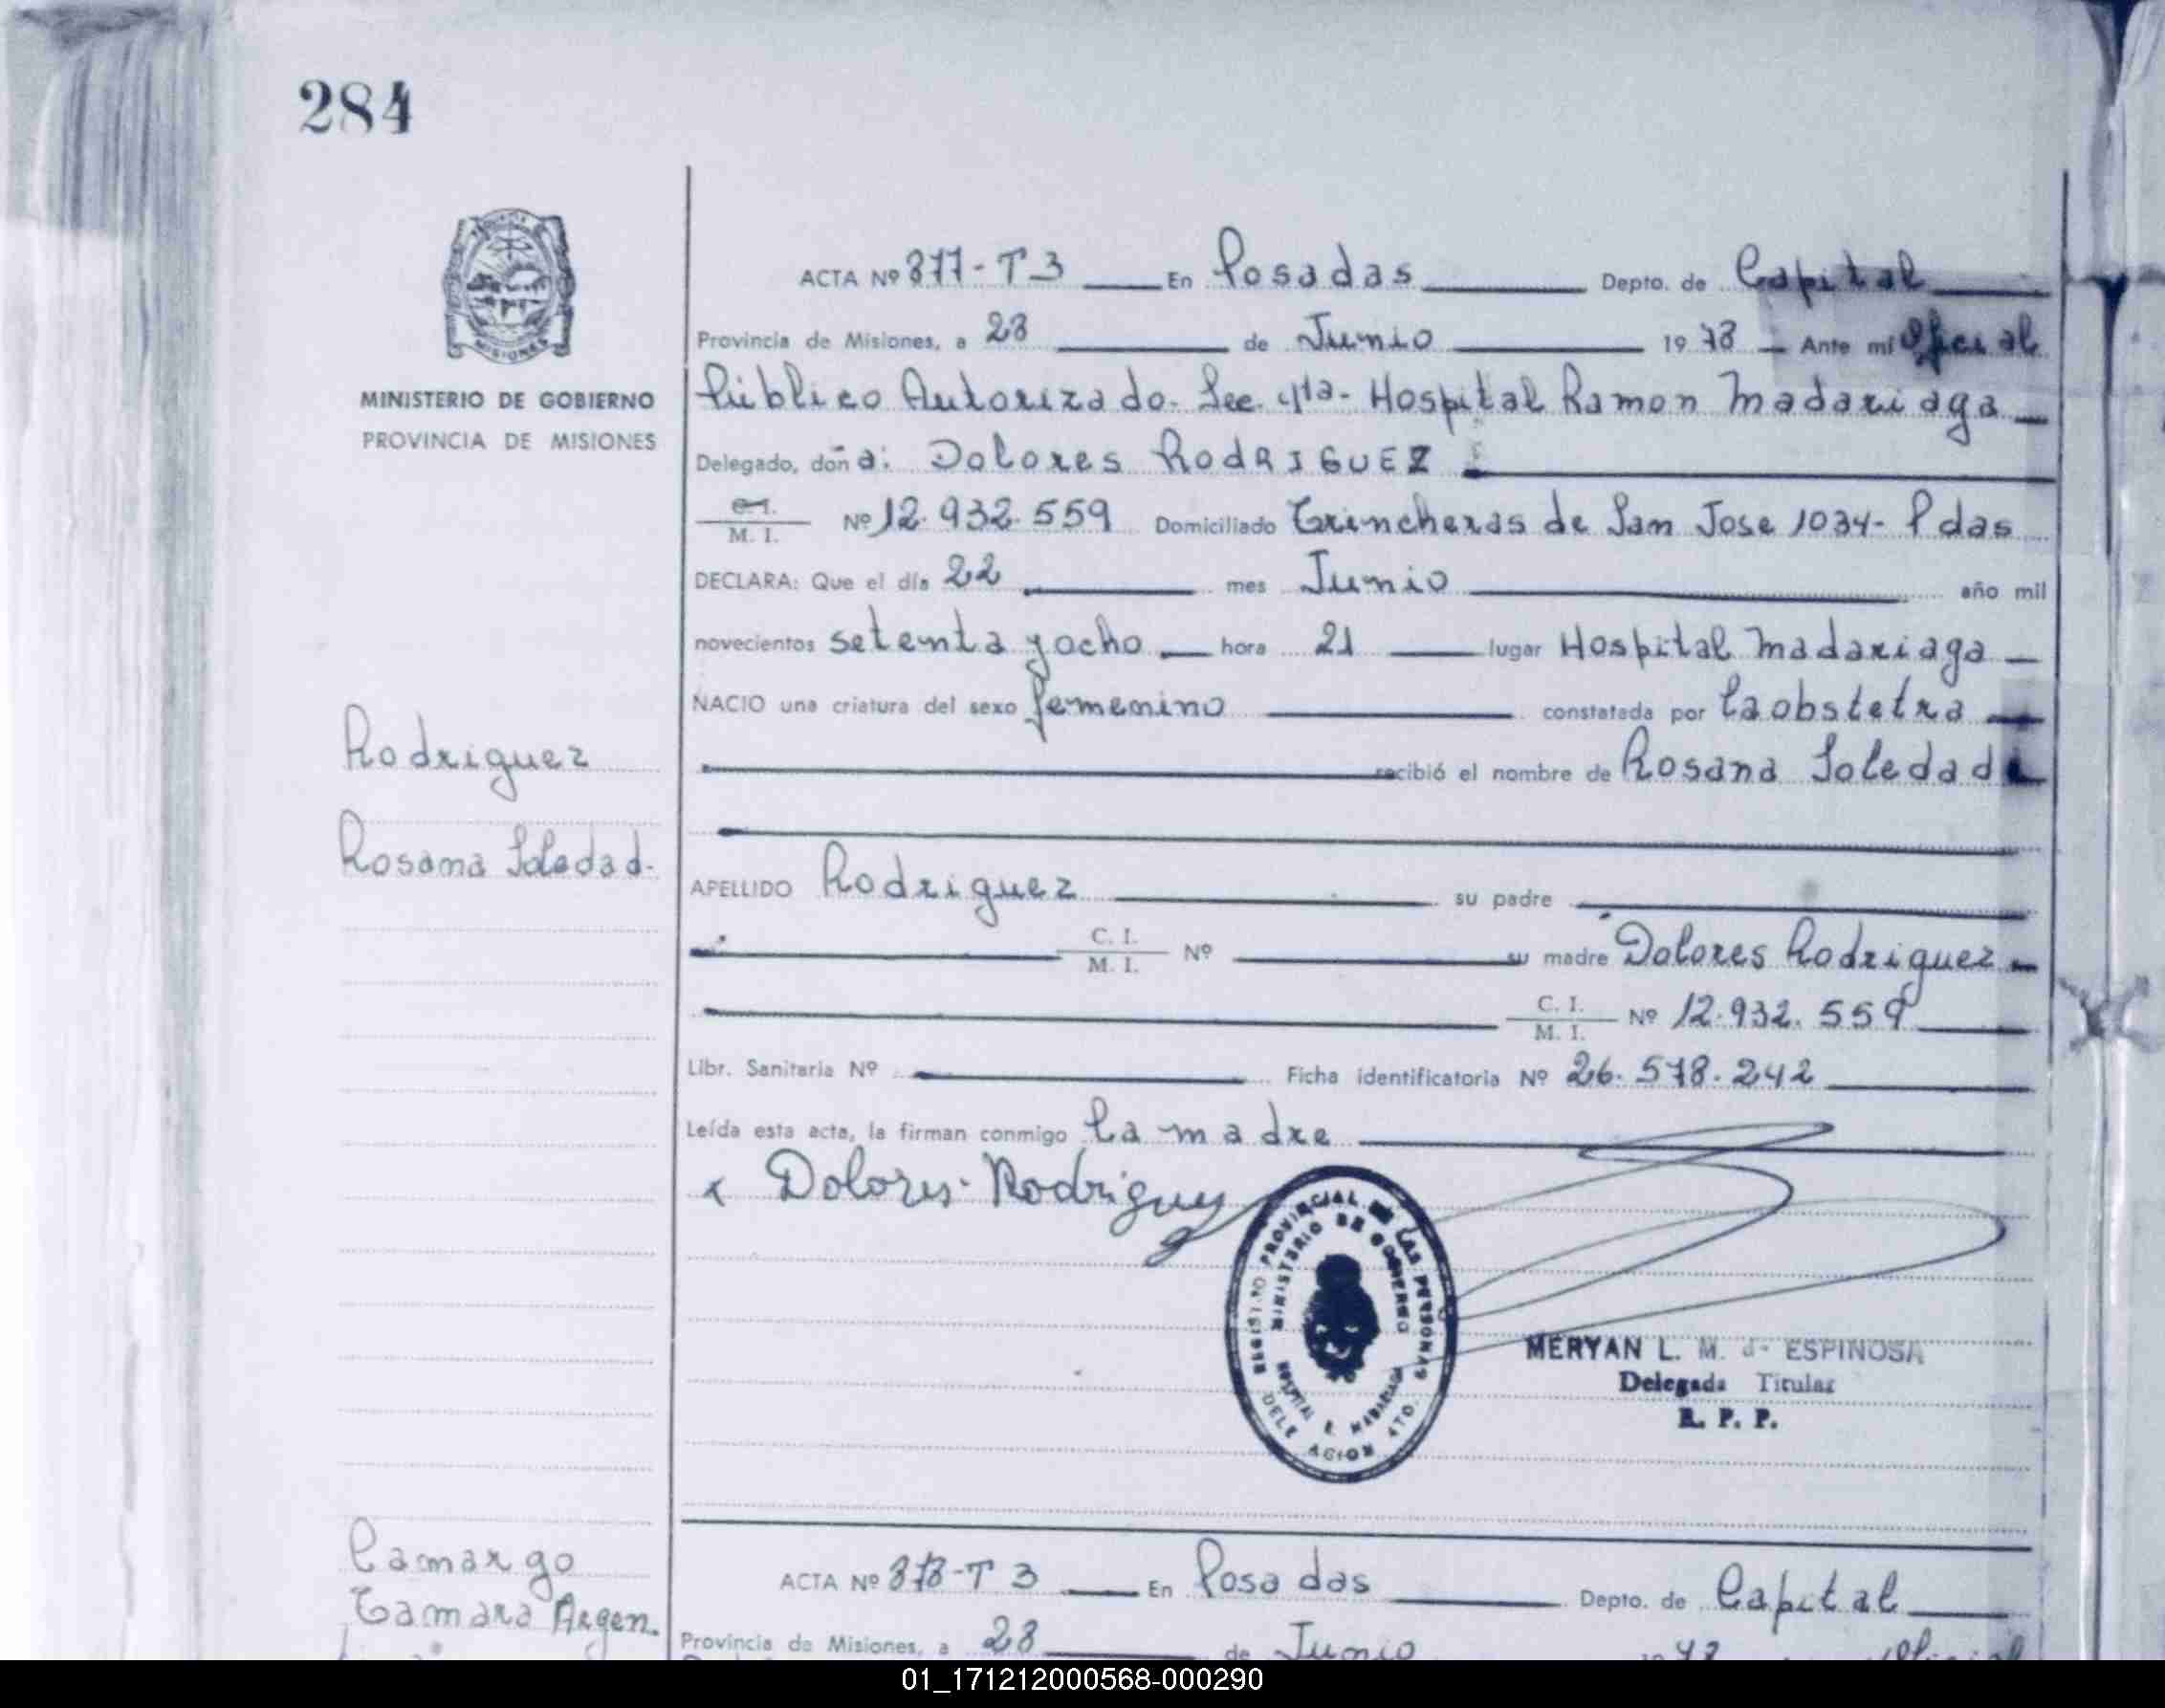 284
MINISTERIO DE GOBIERNO
PROVINCIA DE MISIONES
ACTA Nº 877-T3 En Posadas Depto. de Capital
Provincia de Misiones, a 28 de Junio 1978 Ante mi Oficial
Público Autorizado. Sec. 4ta- Hospital Ramon Madariaga
Delegado, doña: Dolores RodRIGUEZ
C.I. M. I. Nº 12.932.559 Domiciliado Trincheras de San Jose 1034- Pdas
DECLARA: Que el día 22 mes Junio año mil
novecientos setenta y ocho hora 21 lugar Hospital Madariaga
NACIO una criatura del sexo femenino constatada por la obstetra
recibió el nombre de Rosana Soledad
Rodriguez
Rosana Soledad.
APELLIDO Rodriguez su padre
C. I. M. I. Nº su madre Dolores Rodriguez
C. I. M. I. Nº 12.932.559
Libr. Sanitaria Nº Ficha identificatoria Nº 26.578.242
Leída esta acta, la firman conmigo la madre
x Dolores Rodriguez
REGISTRO PROVINCIAL DE LAS PERSONAS
MINISTERIO DE GOBIERNO
HOSPITAL R. MADARIAGA
DELEGACION 4TO.
MERYAN L. M. de ESPINOSA
Delegada Titular
R. P. P.
Camargo
Tamara Argen.
ACTA Nº 878-T 3 En Posadas Depto. de Capital
Provincia de Misiones, a 28 de Junio 1978 Oficial
01_171212000568-000290